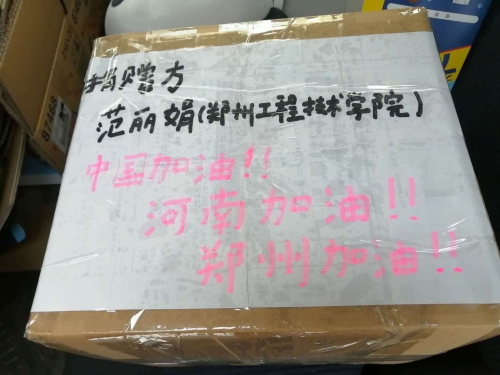 捐赠方
范丽娟(郑州工程技术学院)
中国加油!!
河南加油!!
郑州加油!!